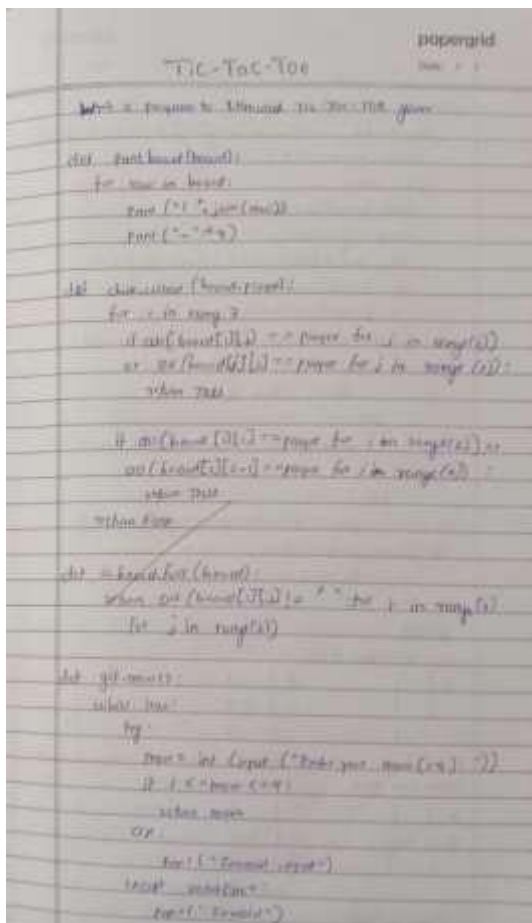 papergrid
Date: / /
Tic-Tac-Toe
a program to Tic Tac Toe game
def board(board):
for row in board:
print (" | ".join(row))
print ("-" * 9)
def (board, player):
for i in range 3
if all(board[i][j] == player for j in range(3))
or all(board[j][i] == player for j in range(3)):
return True
if all(board[i][i] == player for i in range(3)) or
all(board[i][2-i] == player for i in range(3)) :
return True
return False
def (board):
return all(board[i][j] != " " for j in range(3)
for j in range(3))
def get-move():
while True:
try:
move = int (input ("Enter your move (1-9) : "))
if 1 <= move <= 9:
return move
print ("Invalid input")
print (" Invalid")